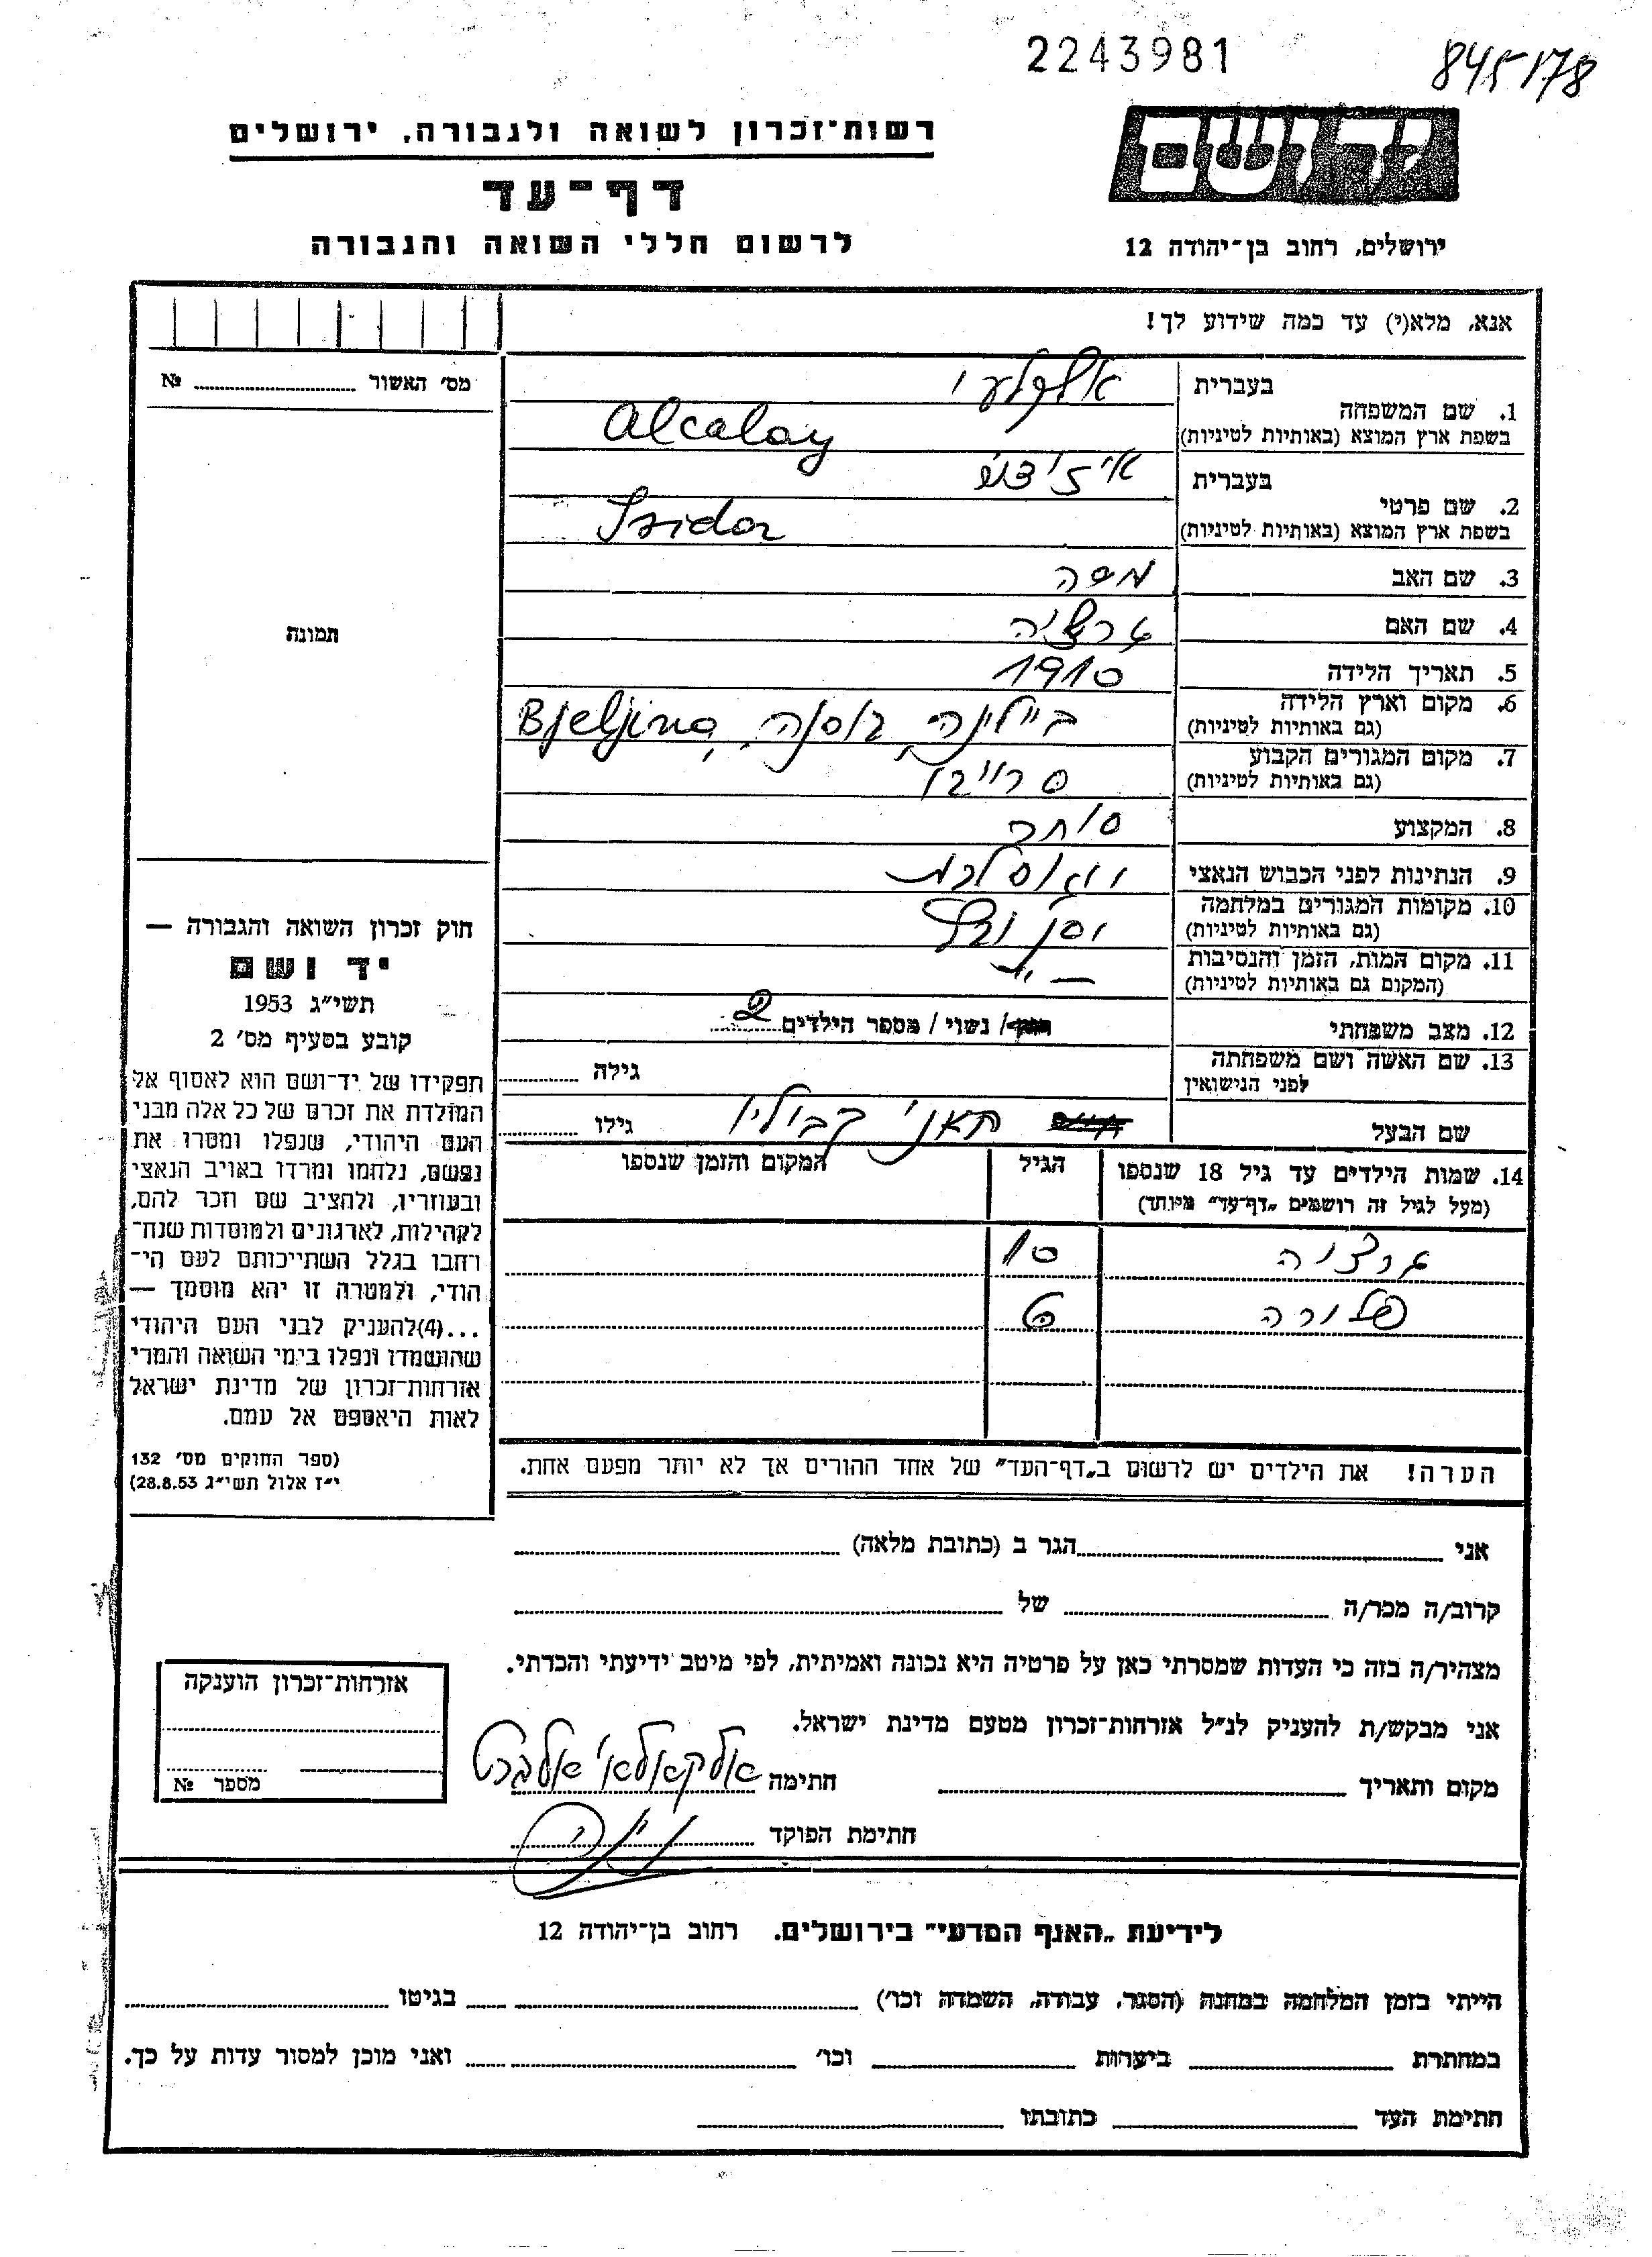 2243981
845178
רשות־זכרון לשואה ולגבורה, ירושלים
דף־עד
לרשום חללי השואה והגבורה
יד ושם
ירושלים, רחוב בן־יהודה 12
אנא, מלא(י) עד כמה שידוע לך!
מס׳ האשור № 
תמונה
1. שם המשפחה
בעברית
אלקלעי
בשפת ארץ המוצא (באותיות לטיניות)
Alcalay
2. שם פרטי
בעברית
בשפת ארץ המוצא (באותיות לטיניות)
Isidor
3. שם האב
משה
4. שם האם
5. תאריך הלידה
1910
6. מקום וארץ הלידה
(גם באותיות לטיניות)
ביילינה, בוסנה, Bjeljina
7. מקום המגורים הקבוע
(גם באותיות לטיניות)
סרייבו
8. המקצוע
סוחר
9. הנתינות לפני הכבוש הנאצי
10. מקומות המגורים במלחמה
(גם באותיות לטיניות)
11. מקום המות, הזמן והנסיבות
(המקום גם באותיות לטיניות)
12. מצב משפחתי
/ נשוי / מספר הילדים 2
13. שם האשה ושם משפחתה
לפני הנישואין
גילה
שם הבעל
חאני קבוליו
גילו
14. שמות הילדים עד גיל 18 שנספו
(מעל לגיל זה רושמים „דף־עד״ מיוחד)
הגיל
המקום והזמן שנספו
10
פלורה
הערה! את הילדים יש לרשום ב„דף־העד״ של אחד ההורים אך לא יותר מפעם אחת.
חוק זכרון השואה והגבורה —
יד ושם
תשי״ג 1953
קובע בסעיף מס׳ 2
תפקידו של יד־ושם הוא לאסוף אל
המולדת את זכרם של כל אלה מבני
העם היהודי, שנפלו ומסרו את
נפשם, נלחמו ומרדו באויב הנאצי
ובעוזריו, ולהציב שם וזכר להם,
לקהילות, לארגונים ולמוסדות שנח־
רבו בגלל השתייכותם לעם הי־
הודי, ולמטרה זו יהא מוסמך —
...(4)להעניק לבני העם היהודי
שהושמדו ונפלו בימי השואה והמרי
אזרחות־זכרון של מדינת ישראל
לאות היאספם אל עמם.
(ספר החוקים מס׳ 132
י״ז אלול תשי״ג 28.8.53)
אני הגר ב (כתובת מלאה)
קרוב/ה מכר/ה של
מצהיר/ה בזה כי העדות שמסרתי כאן על פרטיה היא נכונה ואמיתית, לפי מיטב ידיעתי והכרתי.
אני מבקש/ת להעניק לנ״ל אזרחות־זכרון מטעם מדינת ישראל.
מקום ותאריך חתימה אלקאלאי אלברט
חתימת הפוקד
אזרחות־זכרון הוענקה
מספר №
לידיעת „האגף המדעי״ בירושלים. רחוב בן־יהודה 12
הייתי בזמן המלחמה במחנה (הסגר, עבודה, השמדה וכו׳) בגיטו
במחתרת ביערות וכו׳ ואני מוכן למסור עדות על כך.
חתימת העד כתובתו